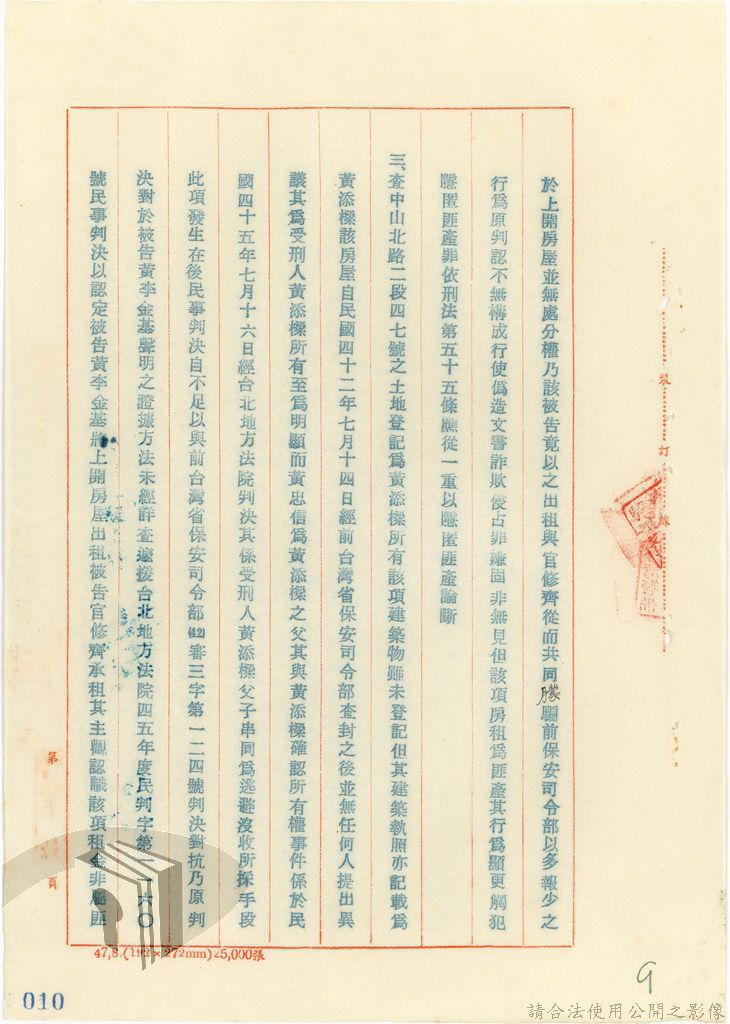 於上開房屋並無處分權乃該被告竟以之出租與官修齊從而共同朦騙前保安司令部以多報少之
行為原判認不無構成行使僞造文書詐欺侵占罪嫌固非無見但該項房租為匪產其行為顯更觸犯
隱匿匪產罪依刑法第五十五條應從一重以隱匿匪產論斷
三、查中山北路二段四七號之土地登記為黃添樑所有該項建築物雖未登記但其建築執照亦記載為
黃添樑該房屋自民國四十二年七月十四日經前台灣省保安司令部查封之後並無任何人提出異
議其為受刑人黃添樑所有至為明顯而黃忠信為黃添樑之父其與黃添樑確認所有權事件係於民
國四十五年七月十六日經台北地方法院判決其係受刑人黃添樑父子串同為逃避沒收所採手段
此項發生在後民事判決自不足以與前台灣省保安司令部(42)審三字第一二四號判決對抗乃原判
決對於被告黃李金基聲明之證據方法未經詳查遽援台北地方法院四五年度民判字第一一六〇
號民事判決以認定被告黃李金基將上開房屋出租被告官修齊承租其主觀認識該項租金非屬匪
裝
訂
線
第
頁
47,8,(192×272mm)25,000張
010
9
請合法使用公開之影像